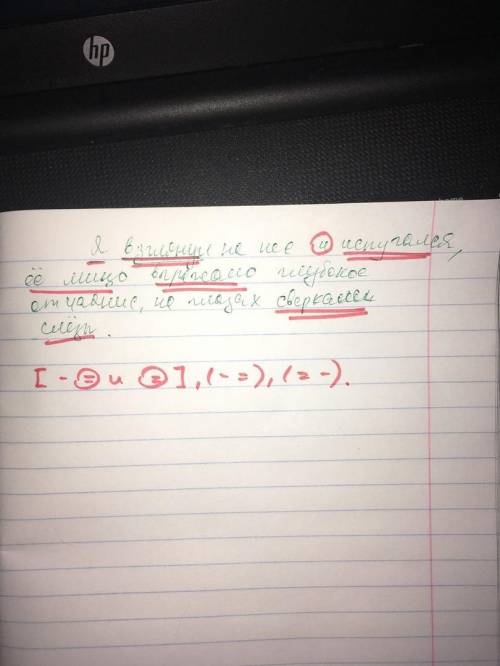 hp
Я взглянул на нее и испугался,
её лицо выражало глубокое
отчаяние, на глазах сверкали
слёзы.
[ - = и = ], ( - = ), ( = - ).